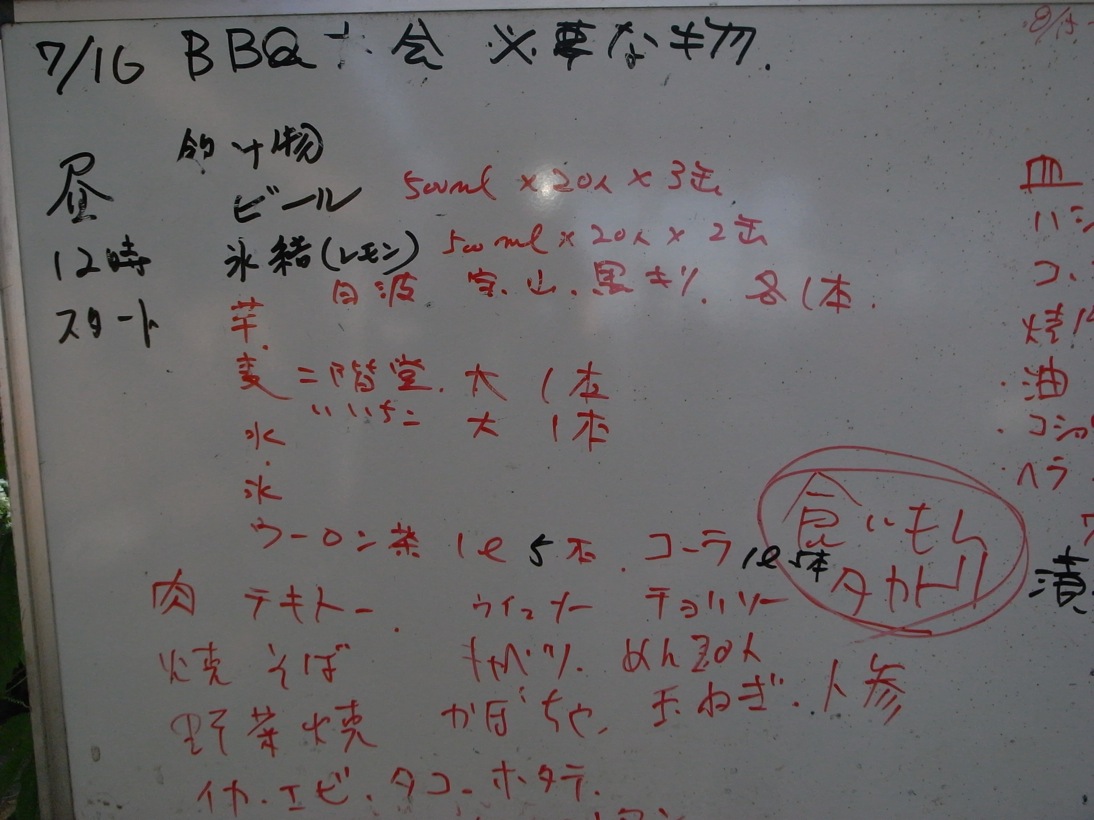 7/16 BBQ大会 必要な物.
8/15
飲み物
昼
12時
スタート
ビール 500ml × 20人 × 3缶
氷結(レモン) 500ml × 20人 × 2缶
芋. 白波 宝.山.黒キリ. 各1本.
麦 二階堂. 大 1本
いいちこ 大 1本
水
氷
ウーロン茶 1ℓ 5本. コーラ 1ℓ 5本
食いもん
タカトリ
肉 テキトー. ウインナー チョリソー
焼そば キャベツ. めん20人
野菜焼 かぼちゃ. 玉ねぎ. 人参
イカ.エビ.タコ.ホタテ.
皿
ハシ
コ
焼
・油
・コショ
ヘラ
漬